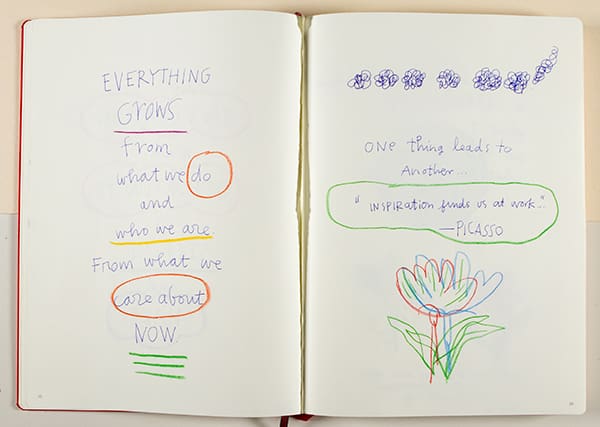 EVERYTHING
GROWS
From
what we do
and
who we are.
From what we
care about
NOW.
ONE thing leads to
Another...
"INSPIRATION finds us at work..."
—PICASSO